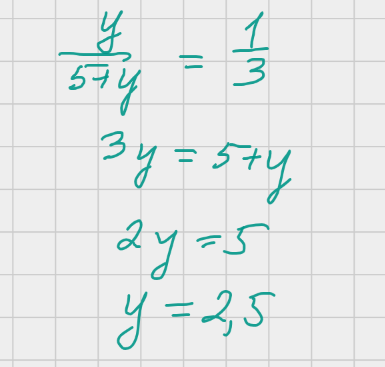 y/(5+y) = 1/3
3y = 5+y
2y = 5
y = 2,5